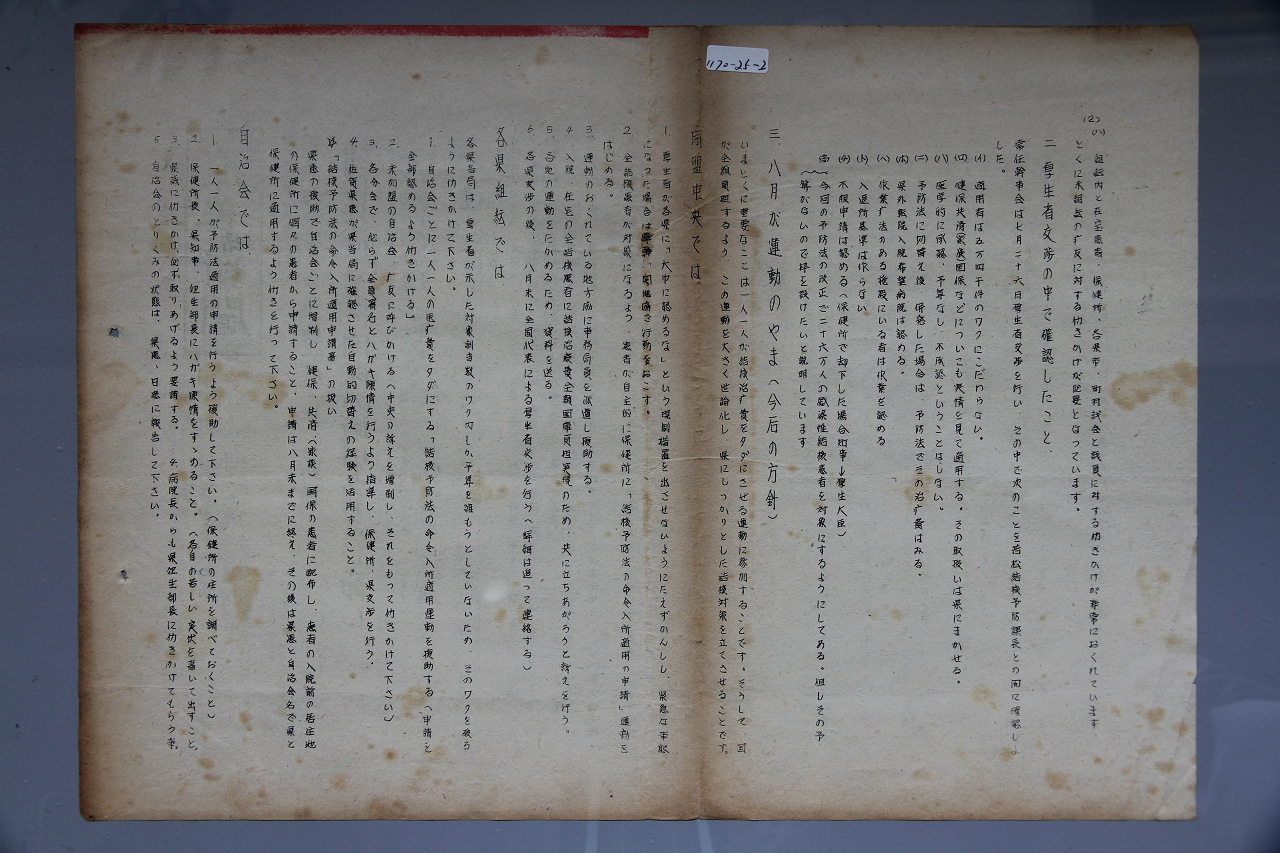 1170-25-2
(2)
(ハ) 組織内と在宅患者、保健所、各県市、町村議会と議員に対する幼きかけが非常におくれています
とくに未組織の広汎に対する幼きかけが必要となっています。
二 厚生省交渉の中で確認したこと、
常任幹事会は七月二十六日厚生省交渉を行い、その中で次のことを若松結核予防課長との間に確認しま
した。
(イ) 適用者は五万四千件のワクにこだわらない。
(ロ) 健保共済(家族)国保などについても実情を見て適用する。その取扱いは県にまかせる。
(ハ) 医学的に承認、予算なし、不承認ということはしない。
(ニ) 予防法に切替え後、併発した場合は、予防法でその治疗費はみる。
(ホ) 県外転院入院希望病院は認める。
(ヘ) 作業疗法のある施設にいる者は作業を認める
(ト) 入退所基準は作らない
(チ) 不服申請は認める(保健所で却下した場合知事→厚生大臣)
今回の予防法の改正で二十六万人の感染性結核患者を対象にするようにしてある。但しその予
算がないので枠を設けたいと説明しています
三、八月が運動のやま(今后の方針)
いまとくに重要なことは一人一人が結核治疗費をタダにさせる運動に参加することです。そうして、国
が全額負担するよう、この運動を大きく世論化し、県にしっかりとした結核対策を立てさせることです。
同盟中央では
1. 厚生省が各県に「大巾に認めるな」という規制措置を出させないようにたえずかんしし、緊急な事態
になった場合は
2. 全結核患者が対象になるよう、患者が自主的に保健所に「結核予防法の命令入所適用の申請」運動を
はじめる。
3. 運動のおくれている地方協に事務局員を派遣し援助する。
4. 入院、在宅の全結核患者に結核治療費全額国庫負担実現のため、共に立ちあがろうと訴えを行う。
5. 各地の運動をたかめるため、資料を送る。
6. 各県交渉の後、八月末に全国代表による厚生省交渉を行う(詳細は追って連絡する)
各県組織では
各県当局は、厚生省が示した対象割当数のワク内しか予算を組もうとしていないため、そのワクを破る
ように幼きかけて下さい。
1. 自治会ごとに一人一人の医疗費をタダにする「結核予防法の命令入所適用運動を援助する(申請を
全部認めるよう幼きかける)
2. 未加盟の自治会、広汎に呼びかける(中央の訴えを増刷し、それをもって幼きかけて下さい)
3. 各分会で、必らず全員署名とハガキ陳情を行うよう指導し、保健所、県交渉を行う。
4. 佐賀県患が県当局に確認させた自動的切替えの経験を活用すること。
「結核予防法の命令入所適用申請書」の扱い
県患の援助で自治会ごとに増刷し、健保、共済(家族)国保の患者に配布し、患者の入院前の居住地
の保健所に個々の患者から申請すること、申請は八月末までに終え、その後は県患と自治会名で県と
保健所に適用するよう幼きを行って下さい。
自治会では
1. 一人一人が予防法適用の申請を行うよう援助して下さい。(保健所の住所を調べておくこと)
2. 保健所長、県知事、衛生部長にハガキ陳情をすゝめること。(各自の苦しい実状を書いて出すこと。
3. 県議に幼きかけ必ず取りあげるよう要請する。 4. 病院長からも県衛生部長に幼きかけてもらう事。
5 自治会のとりくみの状態は、県患、日患に報告して下さい。